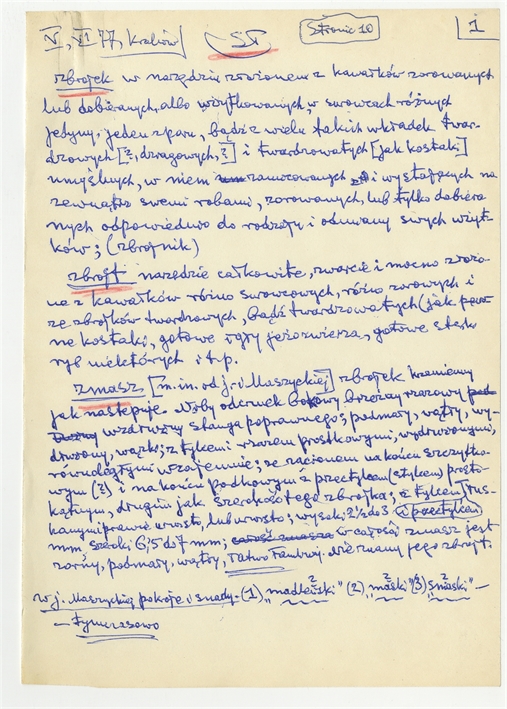 V, VI 77, Kraków SŁ Stronic 10 1
zbrojek w narzędziu złożonem z kawałków zorowanych
lub dobieranych, albo użytkowanych, w surowcach różnych
jedyny, jeden z paru, bądź z wielu takich wkładek twar-
dzcowych [?, drzazgowych, ?] i twardzowatych [jak kostaki]
umyślnych, w niem zamocowanych i wystających na
zewnątrz swemi robami, zorowanych, lub tylko dobiera-
nych odpowiednio do rodzaju i odmiany swych użyt-
ków; (zbrojnik)
zbrojt narzędzie całkowite, zwarcie i mocno złożo-
ne z kawałków różno surowcowych, różno zorowych i
ze zbrojków twardzowych, bądź twardzowatych (jak
ne kostaki, gotowe i gry jeżozwierza, gotowe
ryb niektórych i t.p.
zmasz [m.in. od j-i Maszyckiej] zbrojek krzemienny
jak następuje. Niby odcinek bokowy brzeżny
wzdrużony z ługa poprawnego; podmały, wątły, wy-
drużony, wązki; z tylkiem prostkowymi, wydrużonymi,
równoległymi wzajemnie; ze racionem na końcu szczytko-
wym (?) i na końcu podkowym z przetylkiem (z tylkiem) prosto-
kątnym, drugim jak szerokość tego zbrojka; z tylkiem
prawie wrosto, lub wrosto; wysoki 2½ do 3
mm, szeroki 6,5 do 7 mm; w całości zmasz jest
zorny, podmały, wątły, łatwo łamliwy. Nie znamy jego zbrojt.
w j. Maszyckiej pokoje i snady - (1) "madleński" (2) "maski" (3) "smaski" -
- tymczasowo